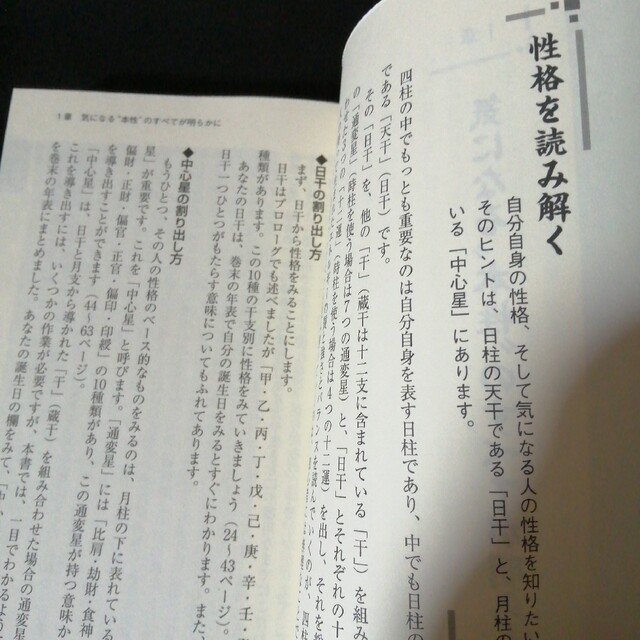 性格を読み解く
自分自身の性格、そして気になる人の性格を知りたい
そのヒントは、日柱の天干である「日干」と、月柱の
いる「中心星」にあります。
四柱の中でもっとも重要なのは自分自身を表す日柱であり、中でも日柱の
である「天干」（日干）です。
その「日干」を、他の「干」（蔵干は十二支に含まれている「干」）を組み
の「通変星」（時柱を使う場合は7つの通変星）と、「日干」とそれぞれの十
3つの「十二運」（時柱を使う場合は4つの十二運）を出し、それを
バランスを読んでいくのが、四柱
1章 気になる“本性”のすべてが明らかに
◆日干の割り出し方
まず、日干から性格をみることにします。
日干はプロローグでも述べましたが「甲・乙・丙・丁・戊・己・庚・辛・壬・
種類があります。この10種の干支別に性格をみていきましょう（24〜43ページ）。
あなたの日干は、巻末の年表で自分の誕生日をみるとすぐにわかります。また、
日干一つひとつがもたらす意味についてもふれてあります。
◆中心星の割り出し方
もうひとつ、その人の性格のベース的なものをみるのは、月柱の下に表れている
星」が重要です。これを「中心星」と呼びます。「通変星」には「比肩・劫財・食神
偏財・正財・偏官・正官・偏印・印綬」の10種類があり、この通変星が持つ意味か
を導き出すことができます（44〜63ページ）。
「中心星」は、日干と月支から導かれた「干」（蔵干）を組み合わせた場合の通変星
これを導き出すには、いくつかの作業が必要ですが、本書では、一目でわかるよう
を巻末の年表にまとめました。あなたの誕生日の欄をみて、